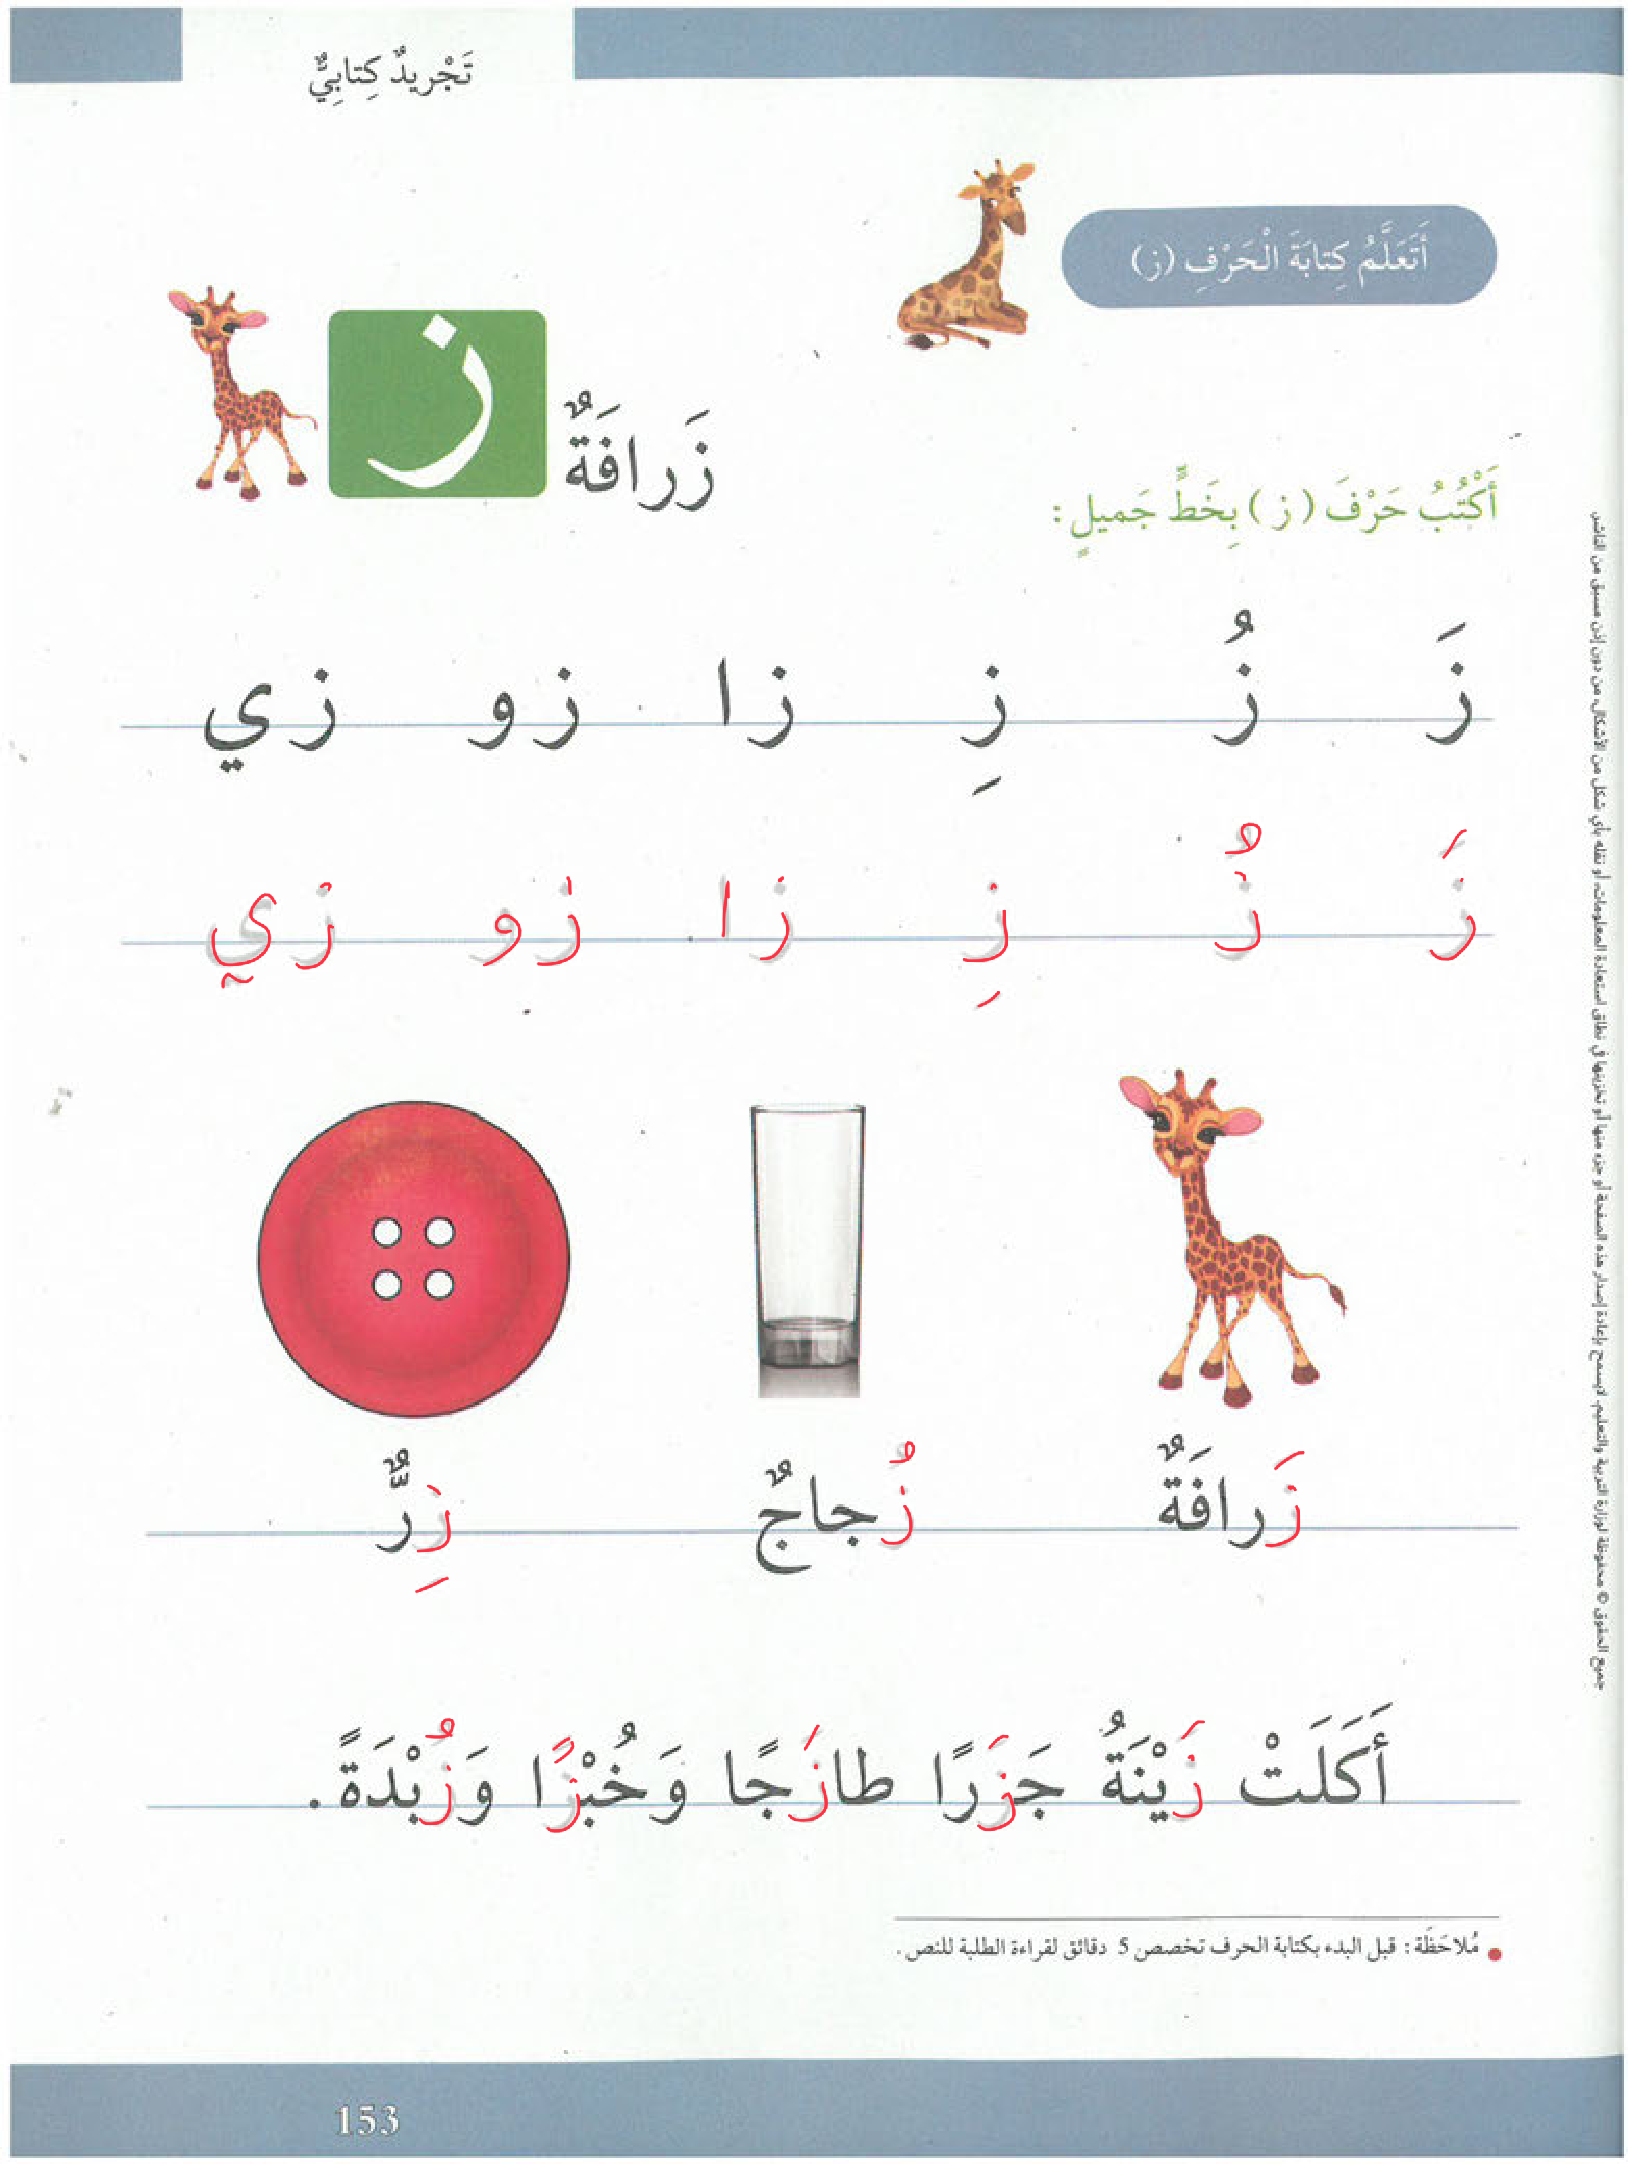 تَجْريدٌ كِتابِيٌّ
أَتَعَلَّمُ كِتابَةَ الْحَرْفِ (ز)
ز
زَرافَةٌ
أَكْتُبُ حَرْفَ (ز) بِخَطٍّ جَميلٍ:
زَ زُ زِ زا زو زي
زَ زُ زِ زا زو زي
زَرافَةٌ زُجاجٌ زِرٌّ
أَكَلَتْ زَيْنَةُ جَزَرًا طازَجًا وَخُبْزًا وَزُبْدَةً.
مُلاحَظَة: قبل البدء بكتابة الحرف تخصص 5 دقائق لقراءة الطلبة للنص.
جميع الحقوق © محفوظة لوزارة التربية والتعليم. لايسمح بإعادة إصدار هذه الصفحة أو جزء منها أو تخزينها في نطاق استعادة المعلومات، أو نقله بأي شكل من الأشكال، من دون إذن مسبق من الناشر.
153